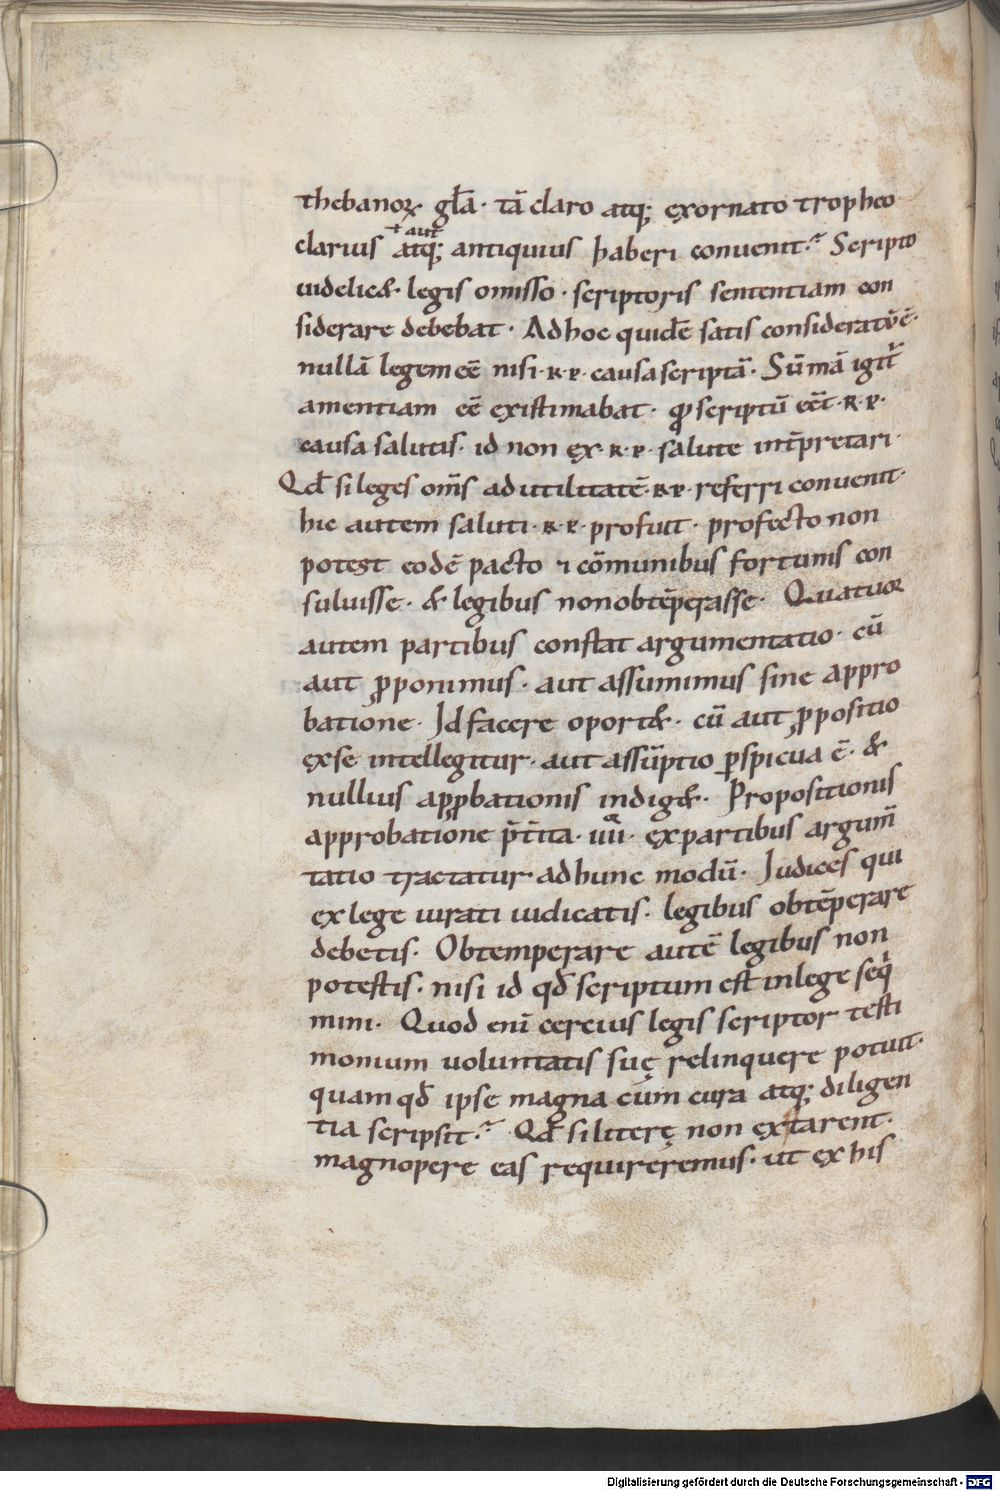 thebanoꝝ· gl̅a· tā claro atq; exornato tropheo
ł aut̄
clarius atq; antiquius haberi conuenit· Scripto
uidelic&· legis omisso· scriptoris sententiam con
siderare debebat· Ad hoc quidē satis consideratū ē·
nullā legem eē nisi·R·P· causa scriptā· Sūmā igit᷑
amentiam eē existimabat· ꝓ scriptū eēt·R·P·
causa salutis· id non ex·R·P· salute int̄pretari·
Qd̄ si leges om̄s ad utilitatē·R·P· referri conuenit·
hic autem saluti·R·P· profuit· profecto non
potest eodē pacto ⁊ cōmunibus fortunis con
suluisse· & legibus non obtēperasse· Quatuor
autem partibus constat argumentatio· cū
aut ꝓponimus· aut assumimus sine appro
batione· Id facere oport&· cū aut ꝓpositio
ex se intellegitur· aut assūptio ꝑspicua ē· &
nullius apꝓbationis indig&· Propositionis
approbatione p̄t̄ita· iiii· ex partibus argum̄
tatio tractatur ad hunc modū· Iudices qui
ex lege iurati iudicatis· legibus obtēperare
debetis· Obtemperare autē legibus non
potestis· nisi id qd̄ scriptum est in lege seq
mini· Quod eni̅ cercius legis scriptor testi
monium uoluntatis suę relinquere potuit·
quam qd̄ ipse magna cum cura atq; diligen
tia scripsit· Qd̄ si litterę non extarent·
magnopere eas requireremus· ut ex his
Digitalisierung gefördert durch die Deutsche Forschungsgemeinschaft - DFG